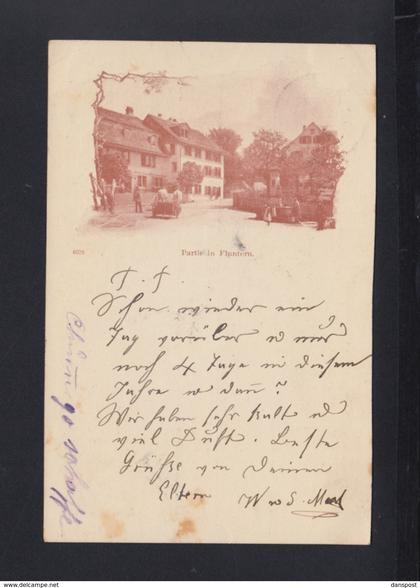 6028
Partie in Fluntern.
T. T.
Schon wieder ein
Tag vorüber u nur
noch 4 Tage in diesem
Jahre u dann?
Wir haben sehr kalt u
viel Duft. Beste
Grüsse von Deinen
Eltern W u S.
www.delcampe.net
danspost